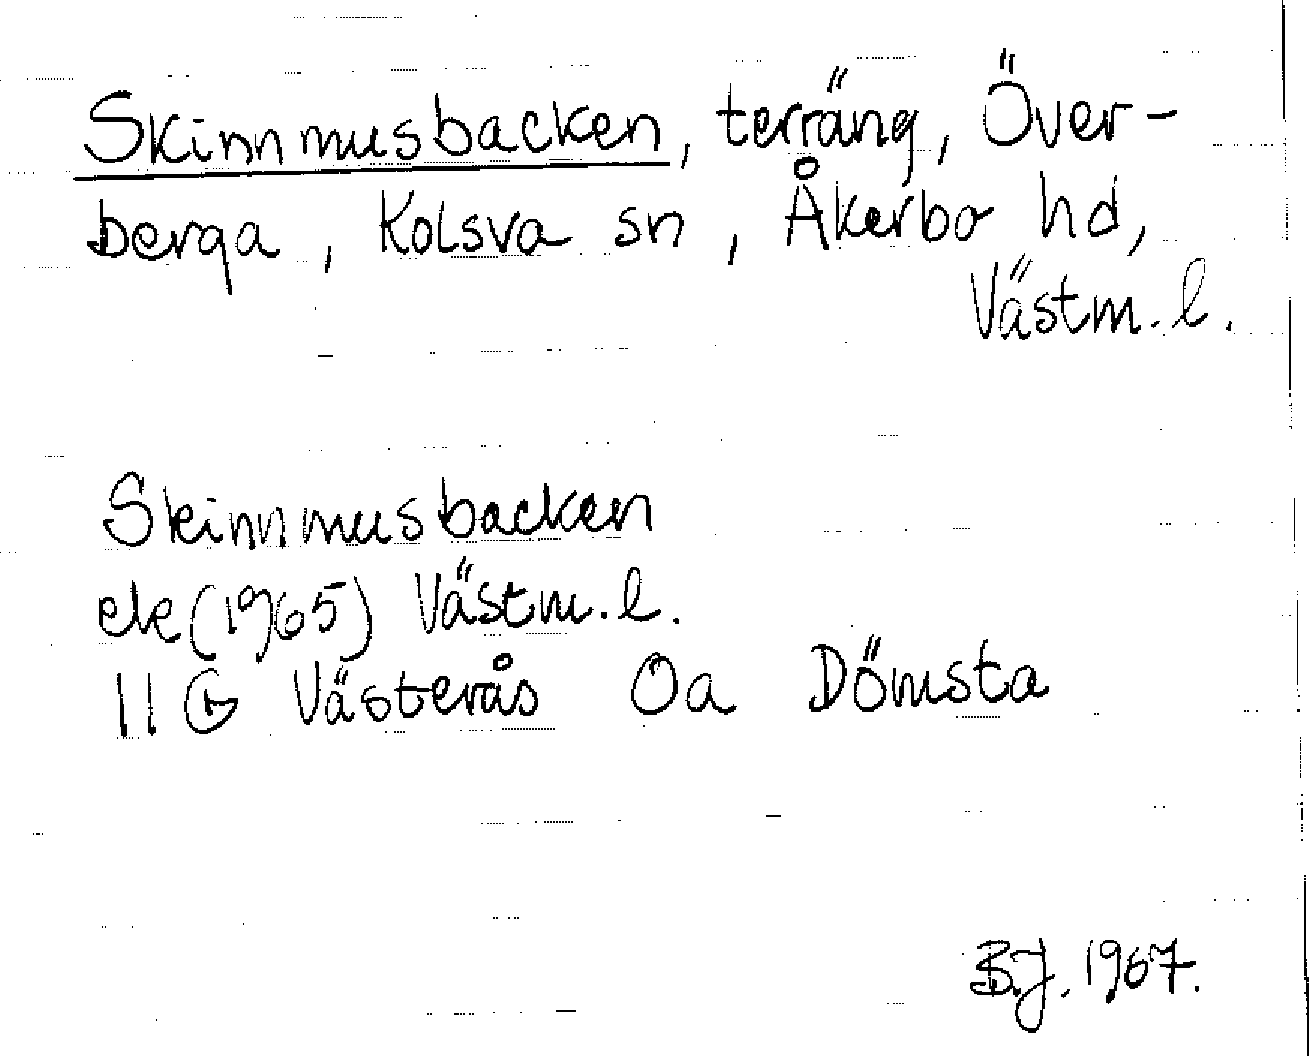 Skinnmusbacken, terräng, Över-
berga, Kolsva sn, Åkerbo hd,
Västm. l.
Skinnmusbacken
ek (1965) Västm. l.
11 G Västerås 0a Dömsta
B.J. 1967.